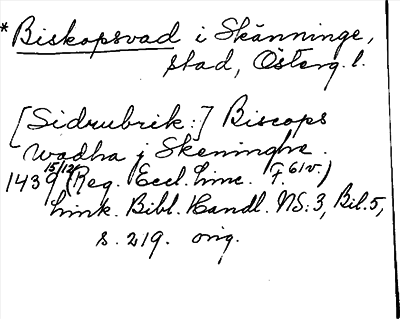 *Biskopsvad i Skänninge,
stad, Österg. l.
[Sidrubrik:] Biscops
wadha j Skeninghe.
1439 15/12 (Reg. Eccl. Linc. F. 61v.)
Link. Bibl. Handl. NS: 3, Bil. 5,
s. 219. orig.